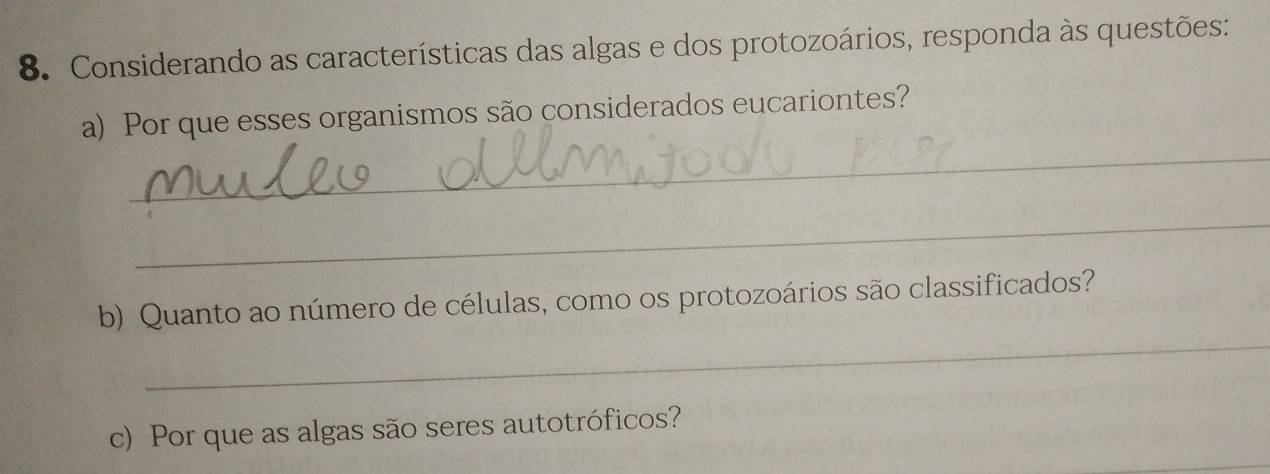 8. Considerando as características das algas e dos protozoários, responda às questões:
a) Por que esses organismos são considerados eucariontes?
b) Quanto ao número de células, como os protozoários são classificados?
c) Por que as algas são seres autotróficos?